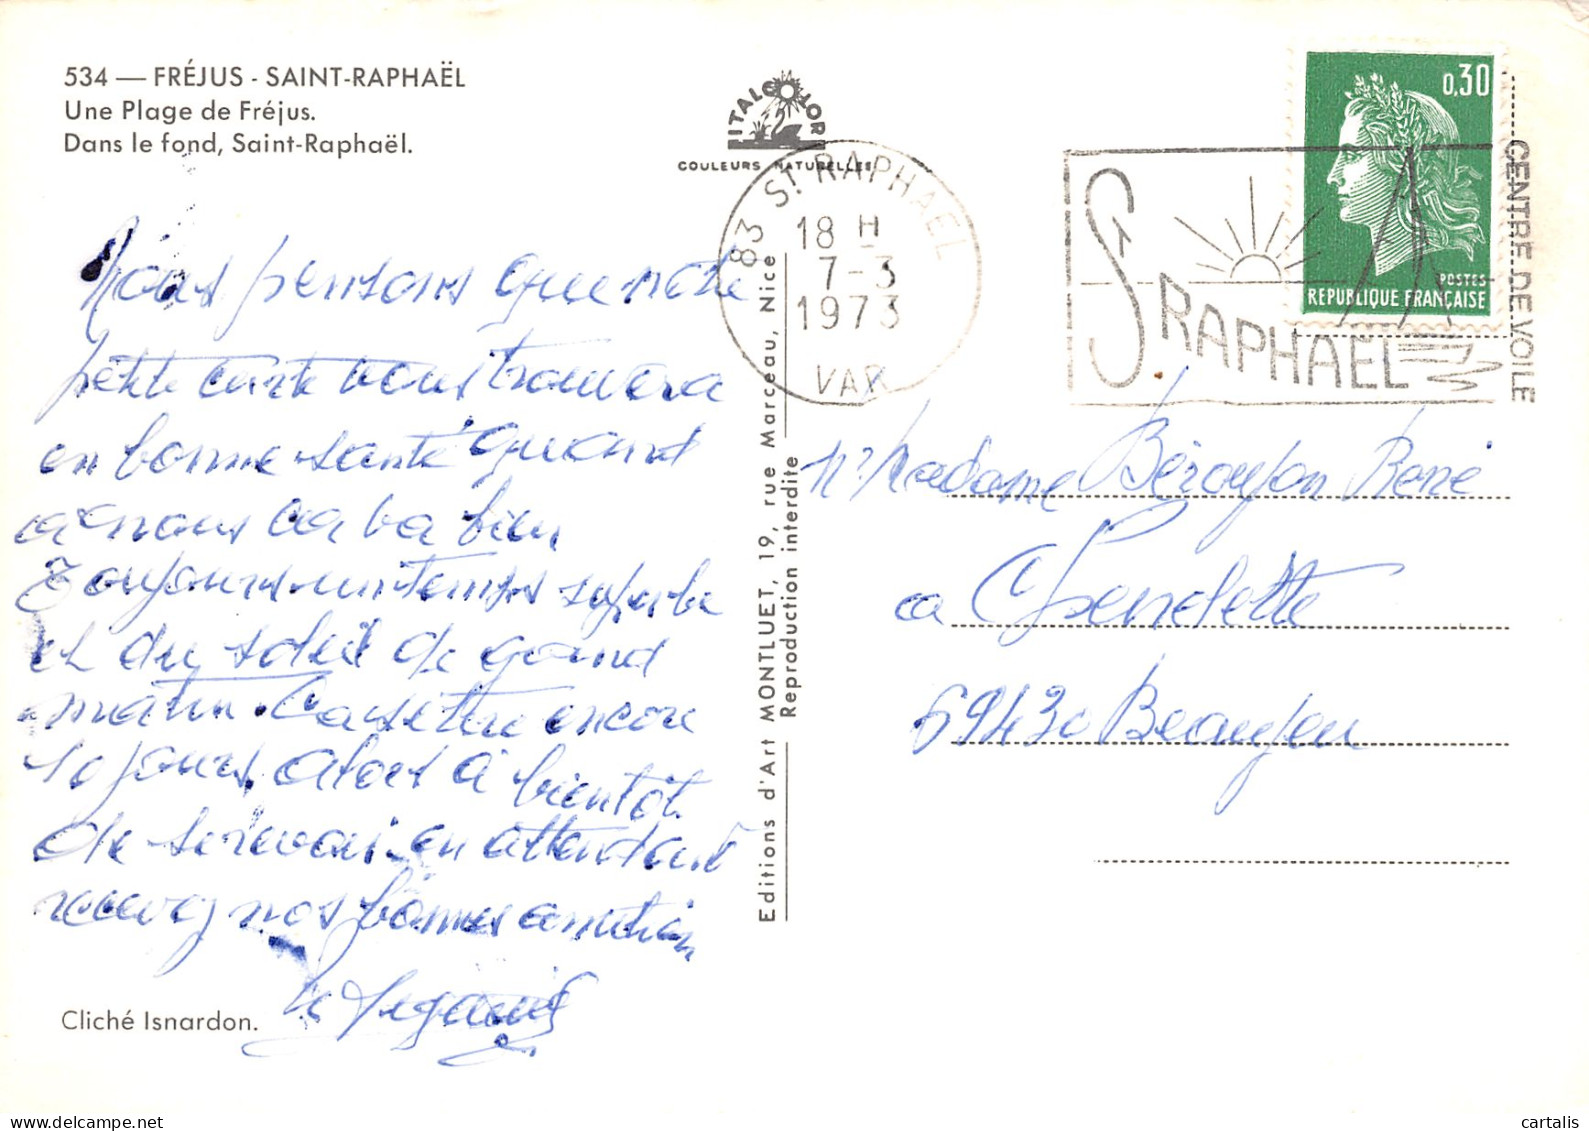 534 — FRÉJUS - SAINT-RAPHAËL
Une Plage de Fréjus.
Dans le fond, Saint-Raphaël.
ITALCOLOR
COULEURS NATURELLES
83 ST RAPHAEL
18 H
7-3
1973
VAR
0,30
POSTES
REPUBLIQUE FRANÇAISE
ST RAPHAEL
CENTRE DE VOILE
Nous pensons que notre
petite carte vous trouvera
en bonne santé quand
a nous ca va bien
Toujours un temps superbe
et du soleil de grand
matin. Ca
encore
10 jours alors à bientôt
de se revoir. en attendant
recevez nos bonnes
Cliché Isnardon.
Editions d'Art MONTLUET, 19, rue Marceau, Nice
Reproduction interdite
Mr Madame Béroujon René
a
69430 Beaujeu
cartalis
delcampe.net